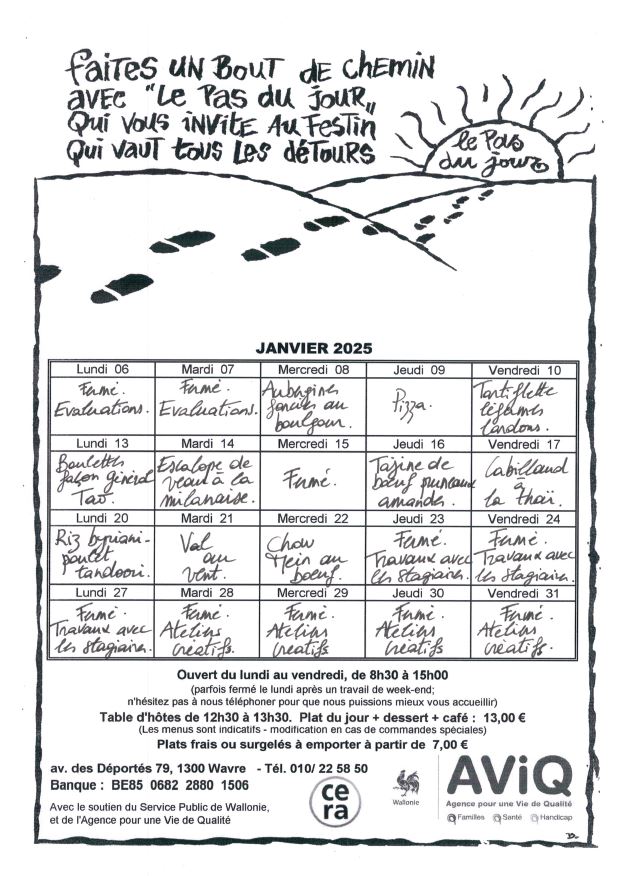 faites un bout de chemin
avec "Le Pas du jour"
qui vous invite au festin
qui vaut tous les détours
le Pas
du jour
JANVIER 2025
Lundi 06
Mardi 07
Mercredi 08
Jeudi 09
Vendredi 10
Fermé.
Evaluations.
Fermé.
Evaluations.
Aubergines
farcies au
boulgour.
Pizza.
Tartiflette
légumes
lardons.
Lundi 13
Mardi 14
Mercredi 15
Jeudi 16
Vendredi 17
Boulettes
façon général
Tao.
Escalope de
veau à la
milanaise.
Fermé.
Tajine de
boeuf pruneaux
amandes.
Cabillaud
à
la thaï.
Lundi 20
Mardi 21
Mercredi 22
Jeudi 23
Vendredi 24
Riz byriani-
poulet
tandoori.
Vol
au
vent.
Chow
Mein au
boeuf.
Fermé.
Travaux avec
les stagiaires.
Fermé.
Travaux avec
les stagiaires.
Lundi 27
Mardi 28
Mercredi 29
Jeudi 30
Vendredi 31
Fermé.
Travaux avec
les stagiaires.
Fermé.
Ateliers
créatifs.
Fermé.
Ateliers
créatifs
Fermé.
Ateliers
créatifs.
Fermé.
Ateliers
créatifs.
Ouvert du lundi au vendredi, de 8h30 à 15h00
(parfois fermé le lundi après un travail de week-end;
n'hésitez pas à nous téléphoner pour que nous puissions mieux vous accueillir)
Table d'hôtes de 12h30 à 13h30. Plat du jour + dessert + café : 13,00 €
(Les menus sont indicatifs - modification en cas de commandes spéciales)
Plats frais ou surgelés à emporter à partir de 7,00 €
av. des Déportés 79, 1300 Wavre - Tél. 010/ 22 58 50
Banque : BE85 0682 2880 1506
Avec le soutien du Service Public de Wallonie,
et de l'Agence pour une Vie de Qualité
ce
ra
Wallonie
AViQ
Agence pour une Vie de Qualité
Familles Santé Handicap